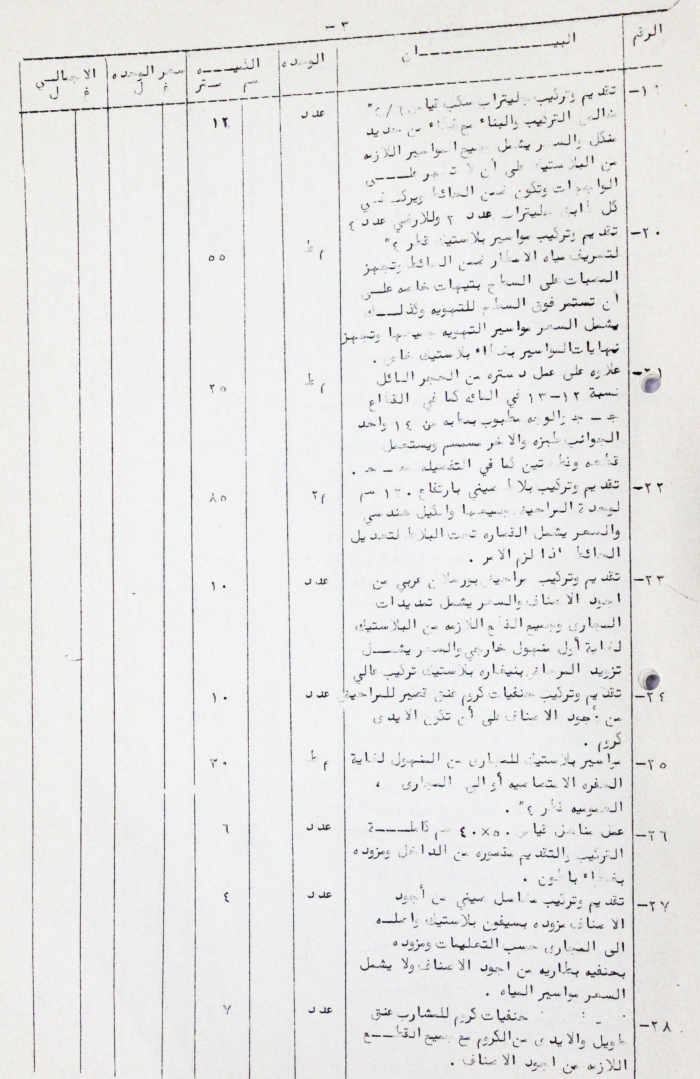 - ٣ -
الرقم البيــــــــــان الوحده الكميـــه سعر الوحده الاجمالـــي
م سنتر ف ل ف ل
١٠- تقديم وتركيب مليترات سكب قياس ٦/٥" عدد ١٢
التركيب والبناء مع غطاء من حديد
مشكل والسعر يشمل جميع المواسير اللازمه
من البلاستيك على أن لا تظهر علـــى
الواجهات وتكون ضمن الحائط ويركب فـي
كل طابق مليترات عدد ٢ وللارضي عدد ٤
٢٠- تقديم وتركيب مواسير بلاستيك قطر ٤" م ط ٥٥
لتصريف مياه الامطار ضمن الحائط وتجهز
المصبات على السطح بتيهات خاصه علــى
أن تستمر فوق السطح للتهويه وكذلــك
يشمل السعر مواسير التهويه جميعها وتجهز
نهايات المواسير بغطاء بلاستيك خاص .
٢١- علاوه على عمل دستره من الحجر المائل م ط ٢٥
نسبة ١٢-١٣ في المائه كما في القطاع
جـ - جـ والوجه مطبوب من ١٤ واحد
الجوانب طبزه والاخر مسمسم ويستعمل
قطعه كما في التفصيله جـ - جـ .
٢٢- تقديم وتركيب بلاط صيني بارتفاع ١٣٠ سم م٢ ٨٥
لوحدة المراحيض جميعها وبشكل هندسي
والسعر يشمل القصاره تحت البلاط لتعديل
الحائط اذا لزم الامر .
٢٣- تقديم وتركيب مراحيض بورسلان عربي من عدد ١٠
اجود الاصناف والسعر يشمل تمديدات
المجارى وجميع القطع اللازمه من البلاستيك
لغاية أول منهول خارجي والسعر يشمــل
تزويد المرحاض بنيغاره بلاستيك تركيب عالي
٢٤- تقديم وتركيب حنفيات كروم عنق قصير للمراحيض عدد ١٠
من أجود الاصناف على أن تكون الايدى
كروم .
٢٥- مواسير بلاستيك للمجارى من المنهول لغاية م ط ٣٠
الحفره الامتصاصيه أو الى المجارى ،
العموميه قطر ٤" .
٢٦- عمل مناهل قياس ٥٠×٤٠ سم كاملـــة عدد ٦
التركيب والتقديم مقصوره من الداخل ومزوده
بغطاء باطون .
٢٧- تقديم وتركيب مغاسل صيني من أجود عدد ٤
الاصناف مزوده بسيفون بلاستيك واصلــه
الى المجارى حسب التعليمات ومزوده
بحنفيه بطاريه من اجود الاصناف ولا يشمل
السعر مواسير المياه .
٢٨- حنفيات كروم للمشارب عنق عدد ٧
طويل والايدى من الكروم مع جميع القطــع
اللازمه من اجود الاصناف .